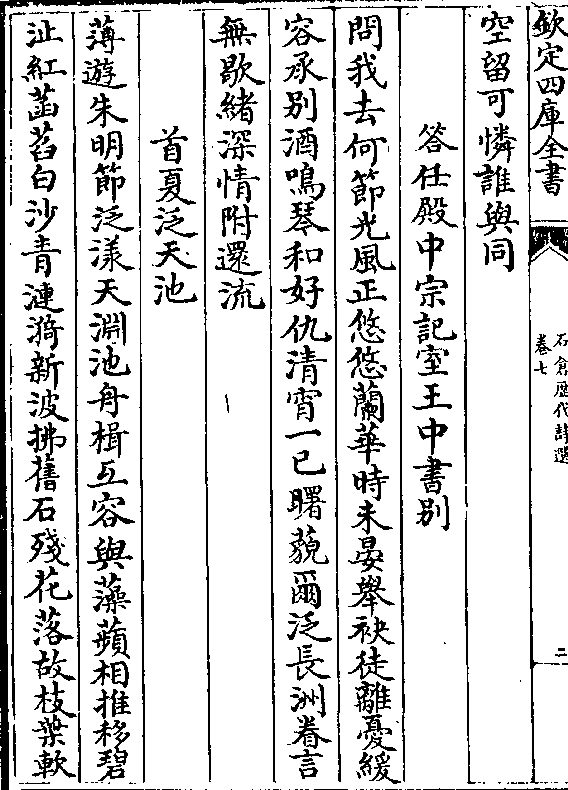 欽定四庫全書
石倉歷代詩選
卷七
二
空留可憐誰與同
答任殿中宗記室王中書别
問我去何節光風正悠悠蘭華時未晏舉袂徒離憂緩
容承别酒鳴琴和好仇清宵一巳曙藐爾泛長洲眷言
無歇緒深情附還流
首夏泛天池
薄遊朱明節泛漾天淵池舟楫互容與藻蘋相推移碧
沚紅菡萏白沙青漣漪新波拂舊石殘花落故枝葉軟